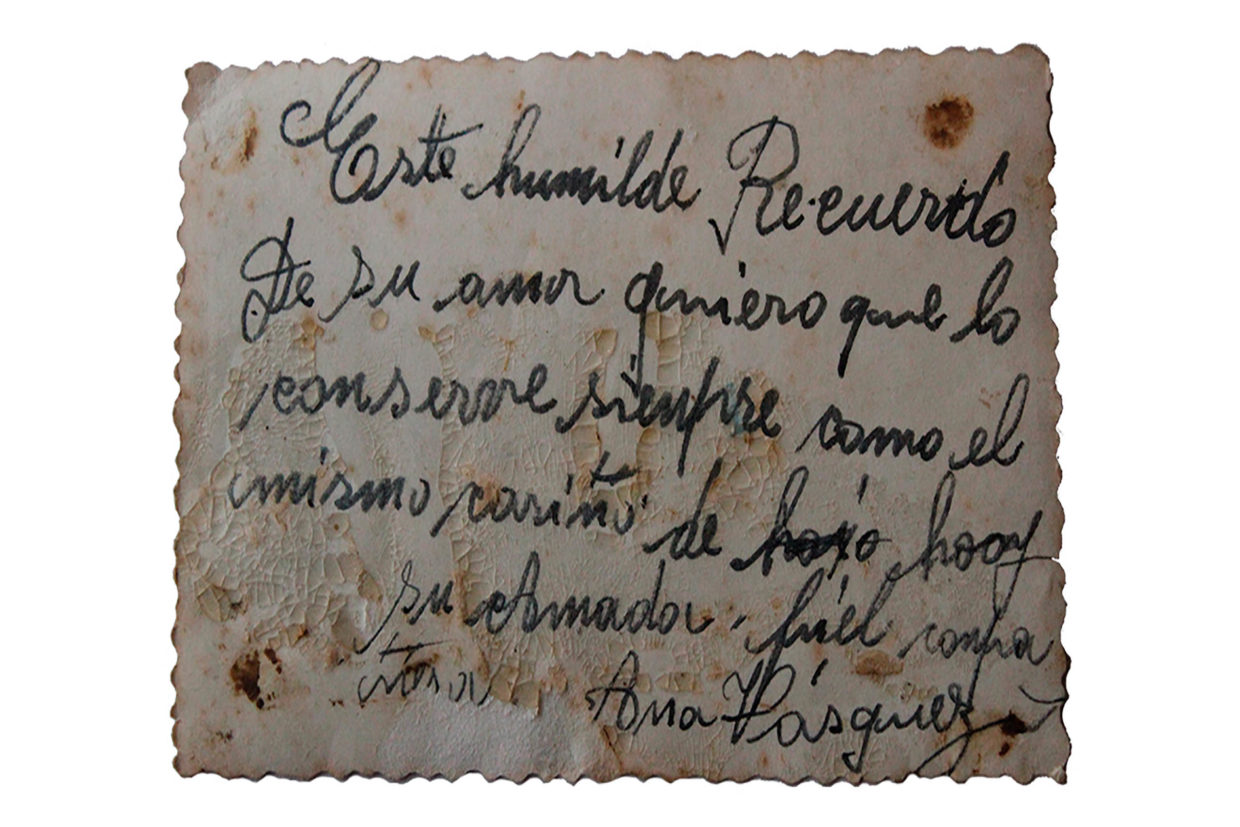 Este humilde Recuerdo
De su amor quiero que lo
conserve sienpre como el
mismo cariño de hooy
su Amada. fiel conpa
Ana Vásquez